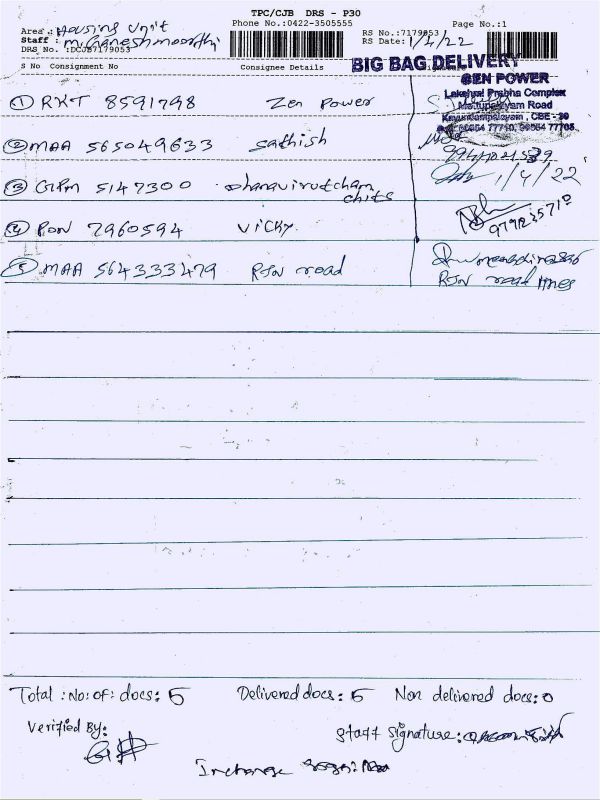 TPC/CJB DRS - P30
Phone No.:0422-3505555
Page No.:1
Area : Housing Unit
Staff : M. Ganeshmoorthi
DRS No. :DCJB7179053
RS No.:7179053
RS Date: 1/4/22
S No Consignment No Consignee Details
BIG BAG DELIVERY
ZEN POWER
Lakshmi Prabha Complex
Mettupalayam Road
① RKT 8591798 Zen Power
② MAA 565049633 Sathish
③ GPM 5147300 Dhanavirutcham
chits
1/4/22
④ PON 7960594 Vicky
⑤ MAA 564333479 RJN road
RJN road
Total : No: of: docs: 5 Delivered docs: 5 Non delivered docs: 0
Verified By:
Staff Signature:
Incharge